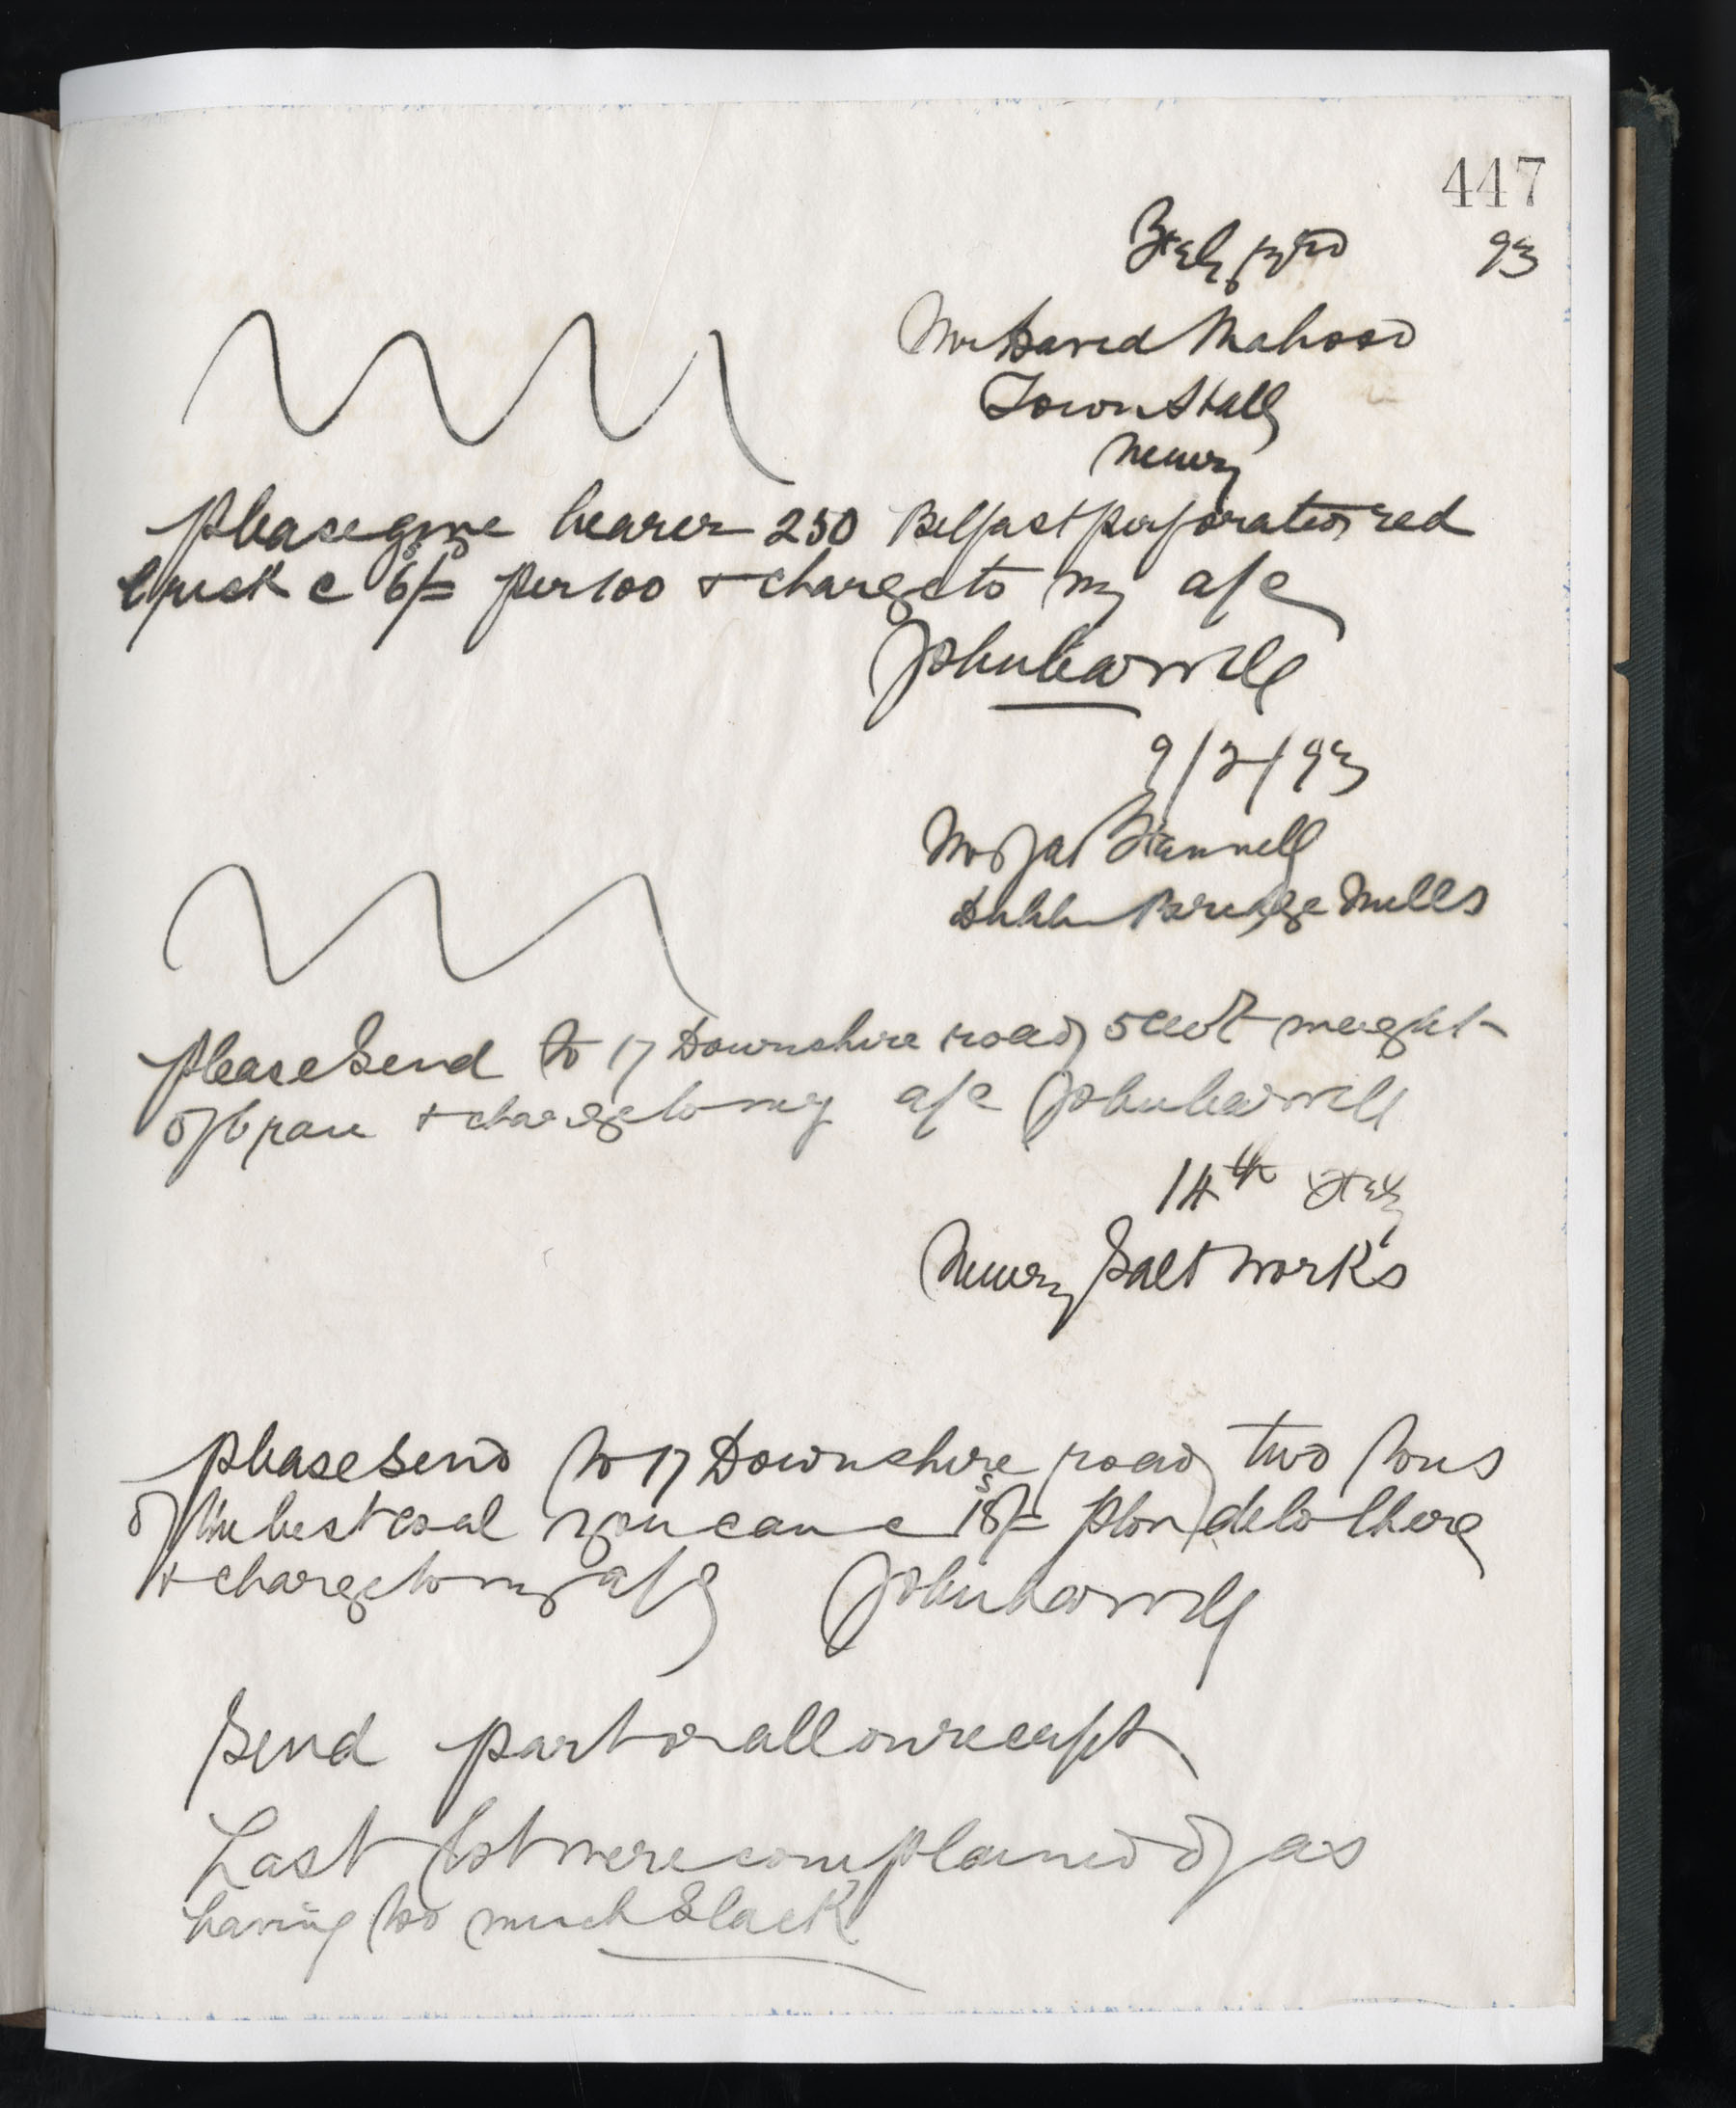 447
Feby 3rd 93
Mr David Mahood
Town Hall
Newry
please give bearer 250 Belfast perforated red
brick @ 6/= per 100 & charge to my a/c
John
9/2/93
Mr Jas Fennell
Dublin Bridge Mills
please send to 17 Downshire road 5 cwt weight
of bran & charge to my a/c John
14th Feby
Newry Salt Works
please send to 17 Downshire road two tons
of the best coal you can @ 18s/= p ton del there
& charge to my a/c John
Send part or all on receipt
Last lot were complained of as
having too much Slack